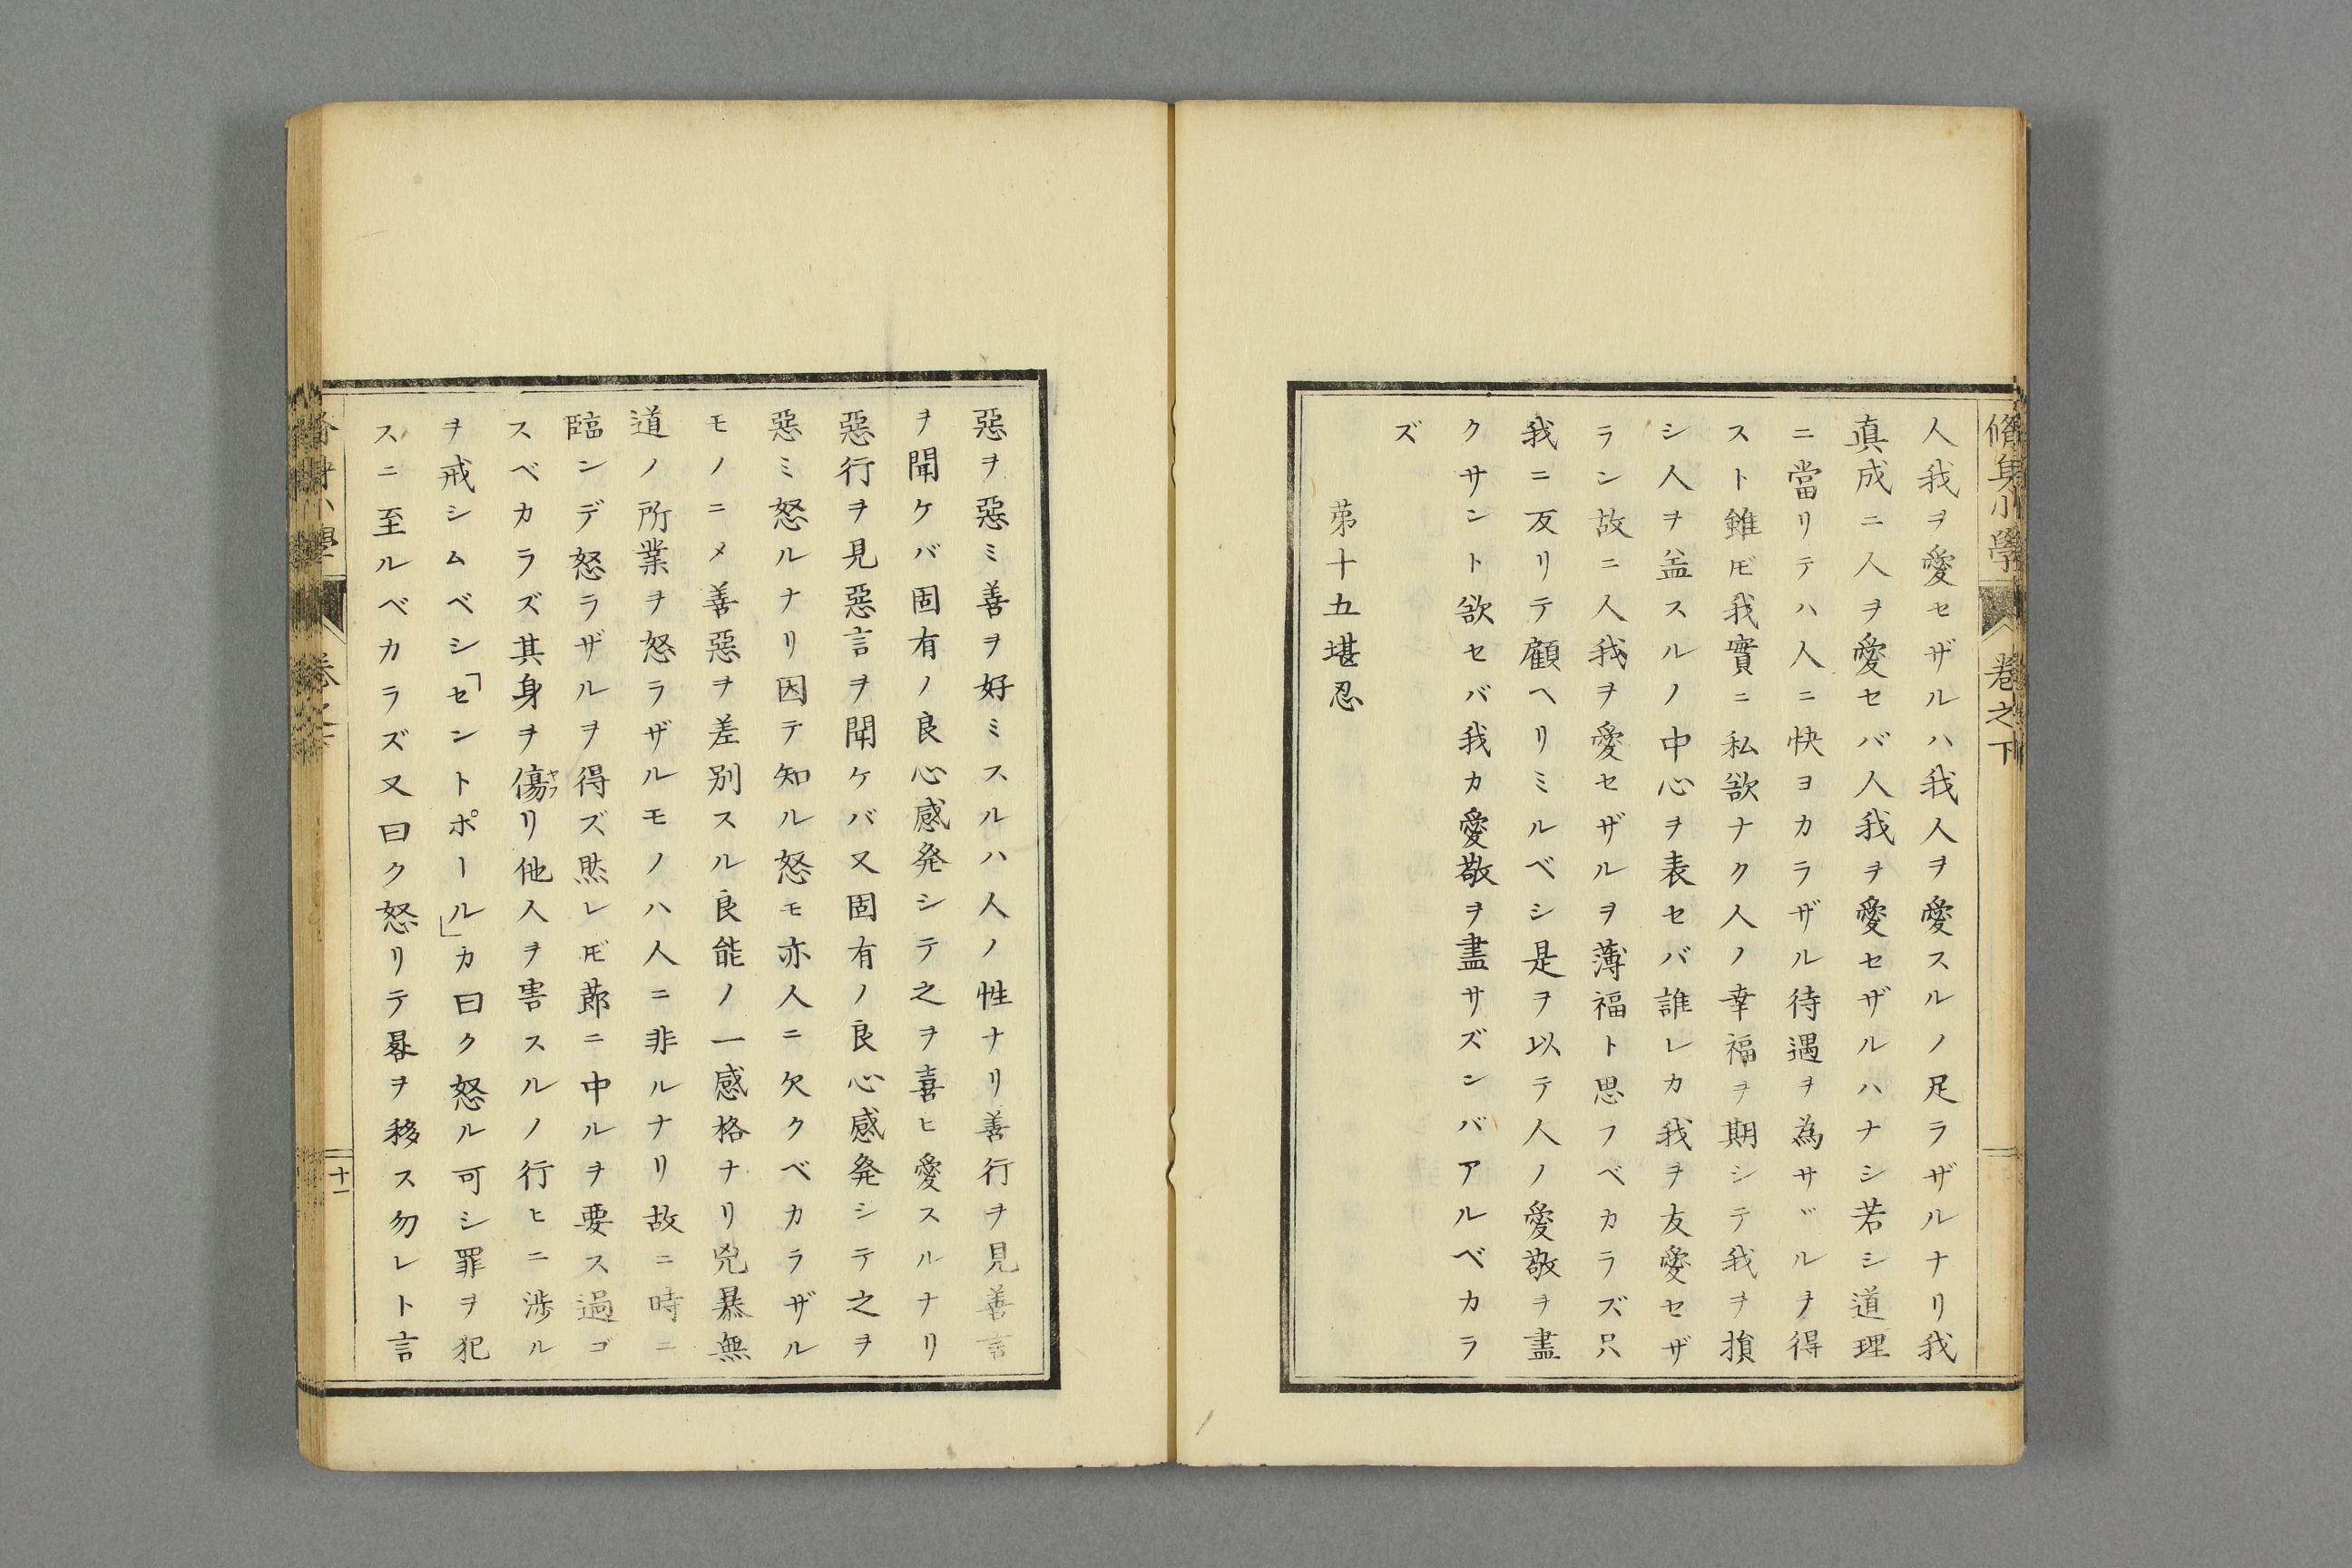 脩身小學 卷之下
人我ヲ愛セザルハ我人ヲ愛スルノ足ラザルナリ我
眞成ニ人ヲ愛セバ人我ヲ愛セザルハナシ若シ道理
ニ當リテハ人ニ快ヨカラザル待遇ヲ為サヾルヲ得
スト雖𪜈我實ニ私欲ナク人ノ幸福ヲ期シテ我ヲ損
シ人ヲ益スルノ中心ヲ表セバ誰レカ我ヲ友愛セザ
ラン故ニ人我ヲ愛セザルヲ薄福ト思フベカラズ只
我ニ反リテ顧ヘリミルベシ是ヲ以テ人ノ愛敬ヲ盡
クサント欲セバ我カ愛敬ヲ盡サズンバアルベカラ
ズ
苐十五堪忍
惡ヲ惡ミ善ヲ好ミスルハ人ノ性ナリ善行ヲ見善言
ヲ聞ケバ固有ノ良心感発シテ之ヲ喜ヒ愛スルナリ
惡行ヲ見惡言ヲ聞ケバ又固有ノ良心感発シテ之ヲ
惡ミ怒ルナリ因テ知ル怒モ亦人ニ欠クベカラザル
モノニメ善惡ヲ差別スル良能ノ一感格ナリ兇暴無
道ノ所業ヲ怒ラザルモノハ人ニ非ルナリ故ニ時ニ
臨ンデ怒ラザルヲ得ズ然レ𪜈莭ニ中ルヲ要ス過ゴ
スベカラズ其身ヲ傷ヤブリ他人ヲ害スルノ行ヒニ渉ル
ヲ戒シムベシ「セントポール」カ曰ク怒ル可シ罪ヲ犯
スニ至ルベカラズ又曰ク怒リテ晷ヲ移ス勿レト言
十一